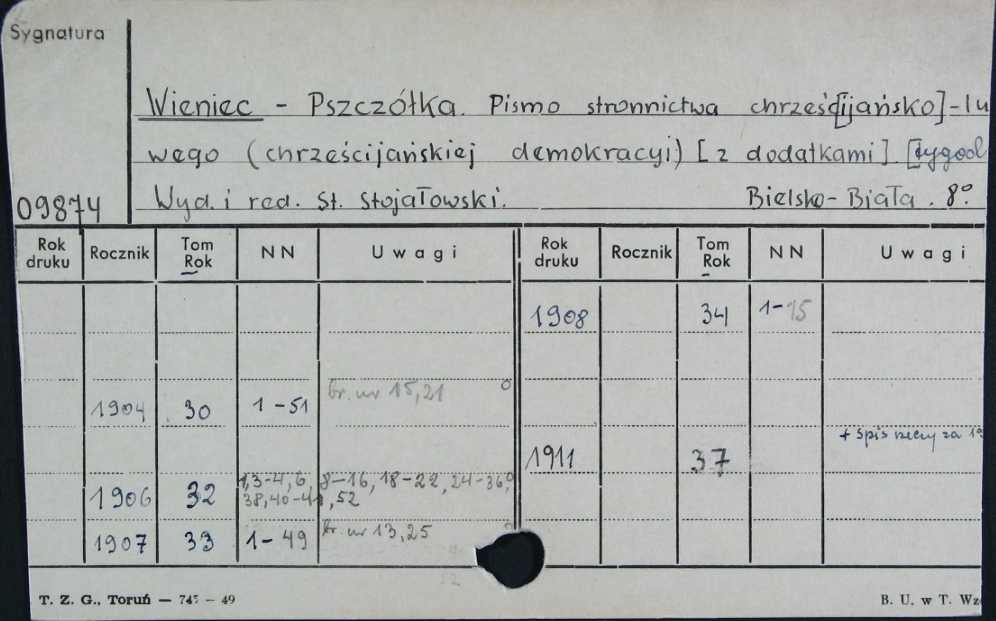 Sygnatura
Wieniec - Pszczółka. Pismo stronnictwa chrześc[ijańsko]-lu
wego (chrześcijańskiej demokracyi) [z dodatkami] [tygod
09874 Wyd. i red. St. Stojałowski. Bielsko-Biała. 8°.
Rok druku Rocznik Tom Rok NN Uwagi Rok druku Rocznik Tom Rok NN Uwagi
1908 34 1-15
1904 30 1-51 br. nr 15,21
1911 37 + spis rzeczy za 19
1906 32 1,3-4,6, 8-16, 18-22, 24-36,
38,40-4 ,52
1907 33 1-49 br. nr 13,25
52
T. Z. G., Toruń — 747 — 49 B. U. w T. Wz